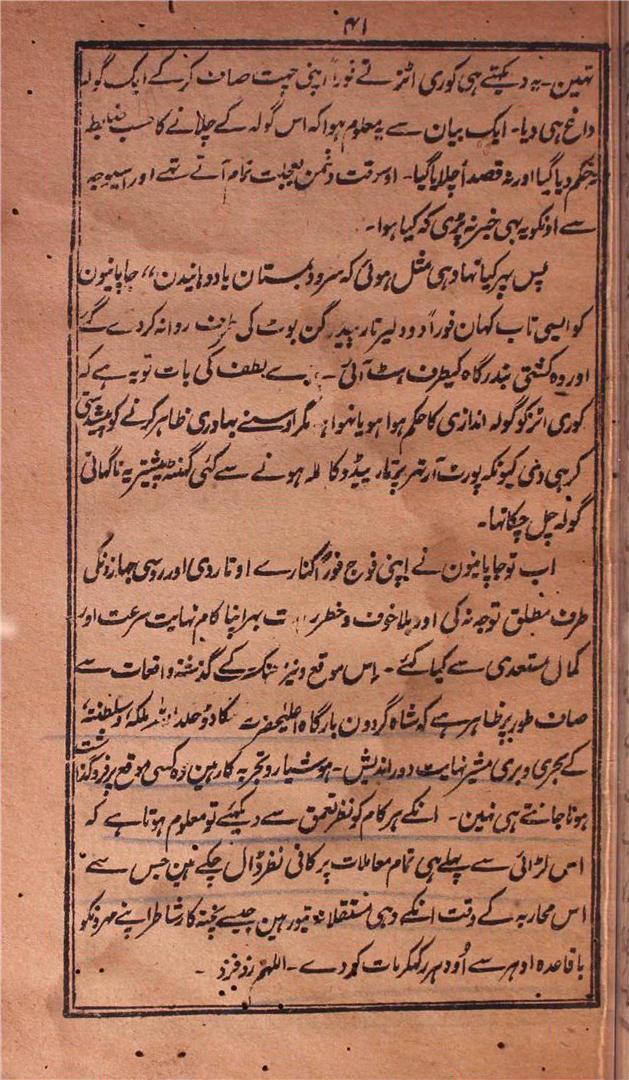 ۴۱
تہین ۔ یہ دیکہتے ہی کوری ائٹز نے فوراً اپنی چہت صاف کر کے ایک گولہ
داغ ہی دیا ۔ ایک بیان سے یہ معلوم ہوا کہ اس گولہ کے چلانے کا حسب ضابطہ
حکم دیا گیا اور نہ قصداً چلایا گیا ۔ اوسوقت دشمن بعجلت تمام آتے تہے اور اسیوجہ
سے اونکو یہ بہی خبر نہ پڑی کہ کیا ہوا ۔
پس پہر کیا تہا وہی مثل ہوئی کہ سرود بمستان یاد دہانیدن ،، جاپانیون
کو ایسی تاب کہان فوراً دو دلیر تارپیدر گن بوٹ کی طرف روانہ کر دے گئے
اور وہ کشتی بندرگاہ کیطرف ہٹ آئی ۔ بے لطف کی بات تو یہ ہے کہ
کوری ائٹز کو گولہ اندازی کا حکم ہوا ہو یا نہوا ہو مگر اوسنے بہادری ظاہر کرنے کو پیشدستی
کر ہی دی کیونکہ پورٹ آرتہر پر تارپیڈو کا حملہ ہونے سے کئی گہنٹہ پیشتر یہ ناگہانی
گولہ چل چکا تہا ۔
اب تو جاپانیون نے اپنی فوج فوراً کنارے اوتار دی اور روسی جہازونکی
طرف مطلق توجہ نہ کی اور بلا خوف و خطر بہر اپنا کام نہایت سرعت اور
کمال مستعدی سے کیا گئے ۔ اس موقع و نیز جنگ کے گذشتہ واقعات سے
صاف طور پر ظاہر ہے کہ شاہ گردون بارگاہ اعلیحضرت مکادو خلد اللہ ملکہ و سلطنتہ
کے بحری و بری مشیر نہایت دور اندیش ۔ ہوشیار و تجربہ کار ہین وہ کسی موقع پر فروگذاشت
ہونا جانتے ہی نہین ۔ انکے ہر کام کو نظر تعمق سے دیکہئے تو معلوم ہوتا ہے کہ
اس لڑائی سے پہلے ہی تمام معاملات پر کافی نظر ڈال چکے ہین جس سے
اس محاربہ کے وقت انکے وہی مستقلانہ تیور ہین جیسے پختہ کار شاطر اپنے مہرونکو
باقاعدہ اوہر سے اُودہر رکہکر مات کر دے ۔ اللہم زد فزد ۔